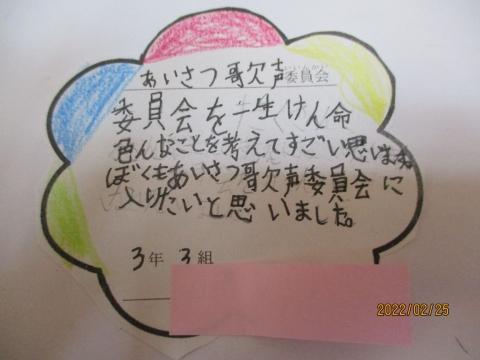 あいさつ歌声委員会
委員会を一生けん命
色んなことを考えてすごい思います
ぼくもあいさつ歌声委員会に
入りたいと思いました。
3年 3組
2022/02/25